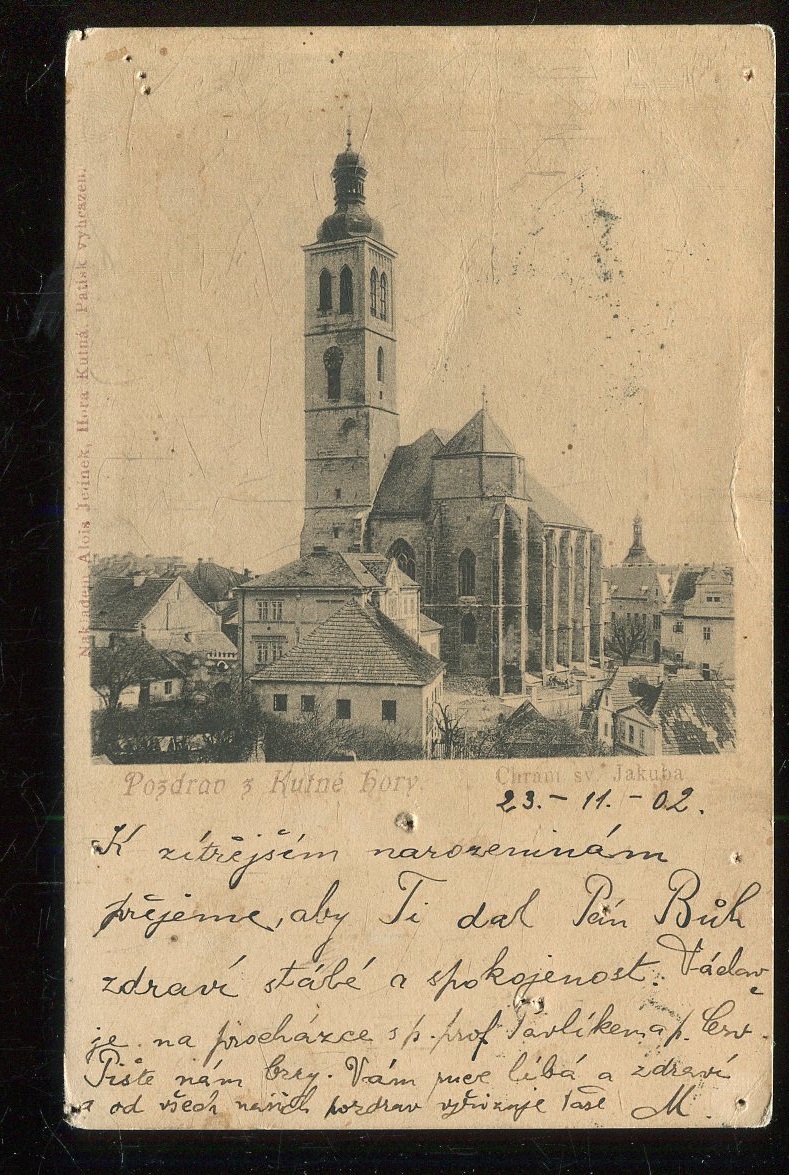 Nákladem Alois Jelínek, Hora Kutná. Patisk vyhrazen.
Pozdrav z Kutné Hory.
Chrám sv. Jakuba
23. - 11. - 02.
K zítřejším narozeninám
přejeme, aby Ti dal Pán Bůh
zdraví stálé a spokojenost. Václav
je na procházce s p. prof. Pavlíkem a p.
Pište nám brzy. Vám ruce líbá a zdraví
a od všech našich pozdrav vyřizuje Vaše M.